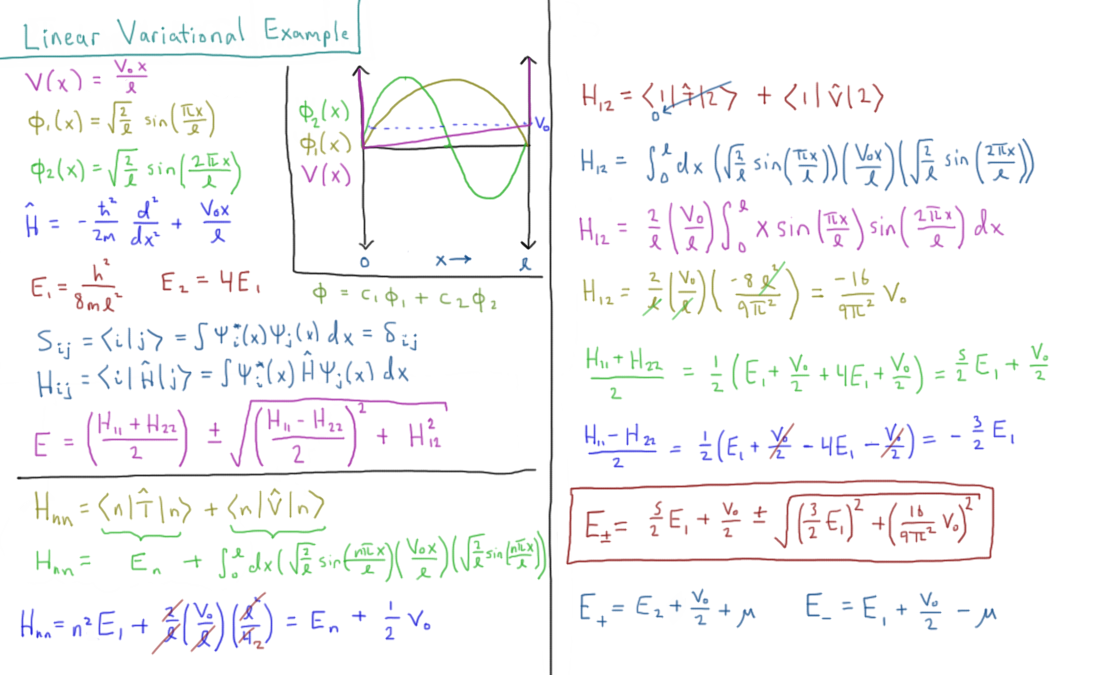 Linear Variational Example
V(x) = V₀x/ℓ
ϕ₁(x) = √(2/ℓ) sin(πx/ℓ)
ϕ₂(x) = √(2/ℓ) sin(2πx/ℓ)
Ĥ = -ħ²/2m d²/dx² + V₀x/ℓ
E₁ = h²/8mℓ² E₂ = 4E₁
ϕ₂(x)
ϕ₁(x)
V(x)
V₀
0 x→ ℓ
ϕ = c₁ϕ₁ + c₂ϕ₂
Sᵢⱼ = ⟨i|j⟩ = ∫Ψᵢ*(x)Ψⱼ(x) dx = δᵢⱼ
Hᵢⱼ = ⟨i|Ĥ|j⟩ = ∫Ψᵢ*(x) Ĥ Ψⱼ(x) dx
E = ((H₁₁ + H₂₂)/2) ± √(((H₁₁ - H₂₂)/2)² + H₁₂²)
Hₙₙ = ⟨n|T̂|n⟩ + ⟨n|V̂|n⟩
Hₙₙ = Eₙ + ∫₀ℓ dx(√(2/ℓ) sin(nπx/ℓ))(V₀x/ℓ)(√(2/ℓ) sin(nπx/ℓ))
Hₙₙ = n²E₁ + (2/ℓ)(V₀/ℓ)(ℓ²/4₂) = Eₙ + 1/2 V₀
H₁₂ = ⟨1|T̂|2⟩ + ⟨1|V̂|2⟩
0
H₁₂ = ∫₀ℓ dx (√(2/ℓ) sin(πx/ℓ))(V₀x/ℓ)(√(2/ℓ) sin(2πx/ℓ))
H₁₂ = 2/ℓ (V₀/ℓ) ∫₀ℓ x sin(πx/ℓ) sin(2πx/ℓ) dx
H₁₂ = 2/ℓ (V₀/ℓ)(-8ℓ²/9π²) = -16/9π² V₀
(H₁₁ + H₂₂)/2 = 1/2(E₁ + V₀/2 + 4E₁ + V₀/2) = 5/2 E₁ + V₀/2
(H₁₁ - H₂₂)/2 = 1/2(E₁ + V₀/2 - 4E₁ - V₀/2) = -3/2 E₁
E± = 5/2 E₁ + V₀/2 ± √((3/2 E₁)² + (16/9π² V₀)²)
E₊ = E₂ + V₀/2 + μ E₋ = E₁ + V₀/2 - μ